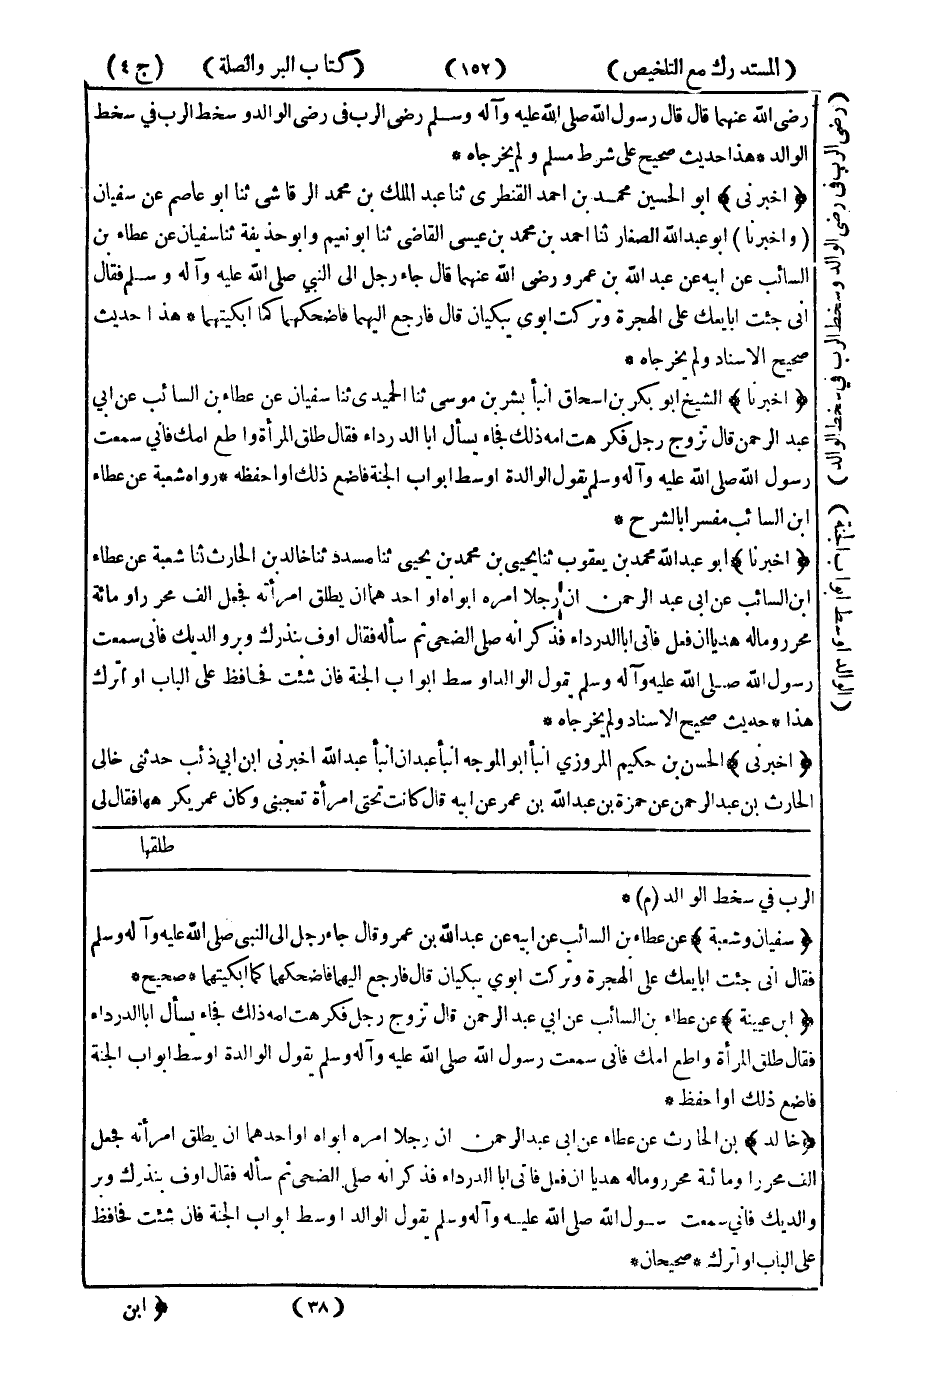 (المستدرك مع التلخيص) (١٥٢) (كتاب البر والصلة) (ج ٤)
رضى الله عنهما قال قال رسول الله صلى الله عليه وآله وسلم رضى الرب فى رضى الوالد و سخط الرب في سخط
الوالد * هذا حديث صحيح على شرط مسلم و لم يخرجاه *
﴿ اخبرنى ﴾ ابو الحسين محمد بن احمد القنطرى ثنا عبد الملك بن محمد الرقاشى ثنا ابو عاصم عن سفيان
(واخبرنا) ابو عبدالله الصفار ثنا احمد بن محمد بن عيسى القاضى ثنا ابو نعيم وابو حذيفة ثنا سفيان عن عطاء بن
السائب عن ابيه عن عبد الله بن عمرو رضى الله عنهما قال جاء رجل الى النبي صلى الله عليه وآله وسلم فقال
انى جئت ابايعك على الهجرة وتركت ابوي يبكيان قال فارجع اليهما فاضحكهما كما ابكيتهما * هذا حديث
صحيح الاسناد ولم يخرجاه *
﴿ اخبرنا ﴾ الشيخ ابو بكر بن اسحاق انبأ بشر بن موسى ثنا الحميدى ثنا سفيان عن عطاء بن السائب عن ابي
عبد الرحمن قال تزوج رجل فكرهت امه ذلك فجاء يسأل ابا الدرداء فقال طلق المرأة واطع امك فاني سمعت
رسول الله صلى الله عليه وآله وسلم يقول الوالدة اوسط ابواب الجنة فاضع ذلك او احفظه * رواه شعبة عن عطاء
ابن السائب مفسرا بالشرح *
﴿ اخبرنا ﴾ ابو عبدالله محمد بن يعقوب ثنا يحيى بن محمد بن يحيى ثنا مسدد ثنا خالد بن الحارث ثنا شعبة عن عطاء
ابن السائب عن ابى عبد الرحمن ان رجلا امره ابواه او احدهما ان يطلق امرأته فجعل الف محررا و مائة
محرر وماله هديا ان فعل فاتى ابا الدرداء فذكر انه صلى الضحى ثم سأله فقال اوف بنذرك وبر والديك فانى سمعت
رسول الله صلى الله عليه وآله وسلم يقول الوالد اوسط ابواب الجنة فان شئت فحافظ على الباب او اترك
هذا * حديث صحيح الاسناد ولم يخرجاه *
﴿ اخبرنى ﴾ الحسن بن حكيم المروزي انبأ ابو الموجه انبأ عبدان انبأ عبدالله اخبرنى ابن ابي ذئب حدثنى خالى
الحارث بن عبد الرحمن عن حمزة بن عبدالله بن عمر عن ابيه قال كانت تحتى امرأة تعجبنى وكان عمر يكرهها فقال لى
طلقها
الرب في سخط الوالد (م) *
﴿ سفيان وشعبة ﴾ عن عطاء بن السائب عن ابيه عن عبدالله بن عمرو قال جاء رجل الى النبى صلى الله عليه وآله وسلم
فقال انى جئت ابايعك على الهجرة وتركت ابوي يبكيان قال فارجع اليهما فاضحكهما كما ابكيتهما * صحيح *
﴿ ابن عيينة ﴾ عن عطاء بن السائب عن ابي عبد الرحمن قال تزوج رجل فكرهت امه ذلك فجاء يسأل ابا الدرداء
فقال طلق المرأة واطع امك فانى سمعت رسول الله صلى الله عليه وآله وسلم يقول الوالدة اوسط ابواب الجنة
فاضع ذلك او احفظ *
﴿ خالد ﴾ بن الحارث عن عطاء عن ابى عبد الرحمن ان رجلا امره ابواه او احدهما ان يطلق امرأته فجعل
الف محررا ومائة محرر وماله هديا ان فعل فاتى ابا الدرداء فذكر انه صلى الضحى ثم سأله فقال اوف بنذرك وبر
والديك فاني سمعت رسول الله صلى الله عليه وآله وسلم يقول الوالد اوسط ابواب الجنة فان شئت فحافظ
على الباب او اترك * صحيحان *
(٣٨) ﴿ ابن
(رضى الرب فى رضى الوالد وسخط الرب في سخط الوالد)
(الوالد اوسط ابواب الجنة)